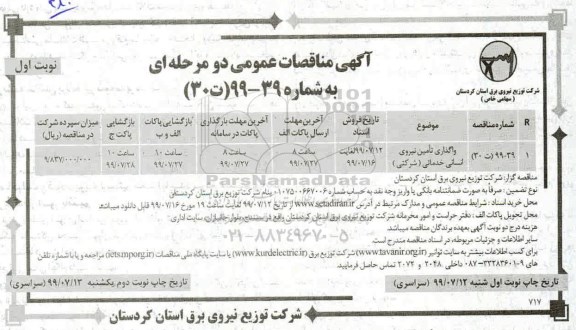 آگهی مناقصات عمومی دو مرحله ای
به شماره ۳۹-۹۹(ت۳۰)
نوبت اول
شرکت توزیع نیروی برق استان کردستان
(سهامی خاص)
R | شماره مناقصه | موضوع | تاریخ فروش اسناد | آخرین مهلت ارسال پاکات الف | آخرین مهلت بارگذاری پاکات در سامانه | بازگشایی پاکات الف و ب | بازگشایی پاکت ج | میزان سپرده شرکت در مناقصه (ریال)
۱ | ۳۹-۹۹ (ت ۳۰) | واگذاری تأمین نیروی انسانی خدماتی (شرکتی) | ۹۹/۰۷/۱۲ لغایت ۹۹/۰۷/۱۶ | ساعت ۸ ۹۹/۰۷/۲۷ | ساعت ۸ ۹۹/۰۷/۲۷ | ساعت ۱۰ ۹۹/۰۷/۲۷ | ساعت ۱۰ ۹۹/۰۷/۲۸ | ۹/۸۳۷/۰۰۰/۰۰۰
مناقصه گزار: شرکت توزیع نیروی برق استان کردستان
نوع تضمین: صرفاً به صورت ضمانتنامه بانکی یا واریز وجه نقد به حساب شماره بنام شرکت توزیع برق استان کردستان
محل خرید اسناد: شرایط مناقصه عمومی و مدارک مرتبط در آدرس www.setadiran.ir از تاریخ ۹۹/۰۷/۱۲ لغایت ساعت ۱۹ مورخ ۹۹/۰۷/۱۶ قابل دانلود میباشد.
محل تحویل پاکات الف: دفتر حراست و امور محرمانه شرکت توزیع نیروی برق استان کردستان واقع در سنندج، بلوار جانبازان، سایت اداری
هزینه درج دو نوبت آگهی بعهده برندگان مناقصه میباشد.
سایر اطلاعات و جزئیات مربوطه، در اسناد مناقصه مندرج است.
برای کسب اطلاعات بیشتر به سایت توانیر (www.tavanir.org.ir) شرکت توزیع برق (www.kurdelectric.ir) یا سایت پایگاه ملی مناقصات (iets.mporg.ir) مراجعه و یا با شماره تلفن
های ۹-۳۳۲۸۳۶۰۱-۰۸۷ داخلی ۲۰۴۸ و ۲۰۷۲ تماس حاصل فرمایید.
تاریخ چاپ نوبت اول شنبه ۹۹/۰۷/۱۲ (سراسری)
تاریخ چاپ نوبت دوم یکشنبه ۹۹/۰۷/۱۳ (سراسری)
۷۱۷
شرکت توزیع نیروی برق استان کردستان
ParsNamadData
۰۲۱-۸۸۳۴۹۶۷۰-۵